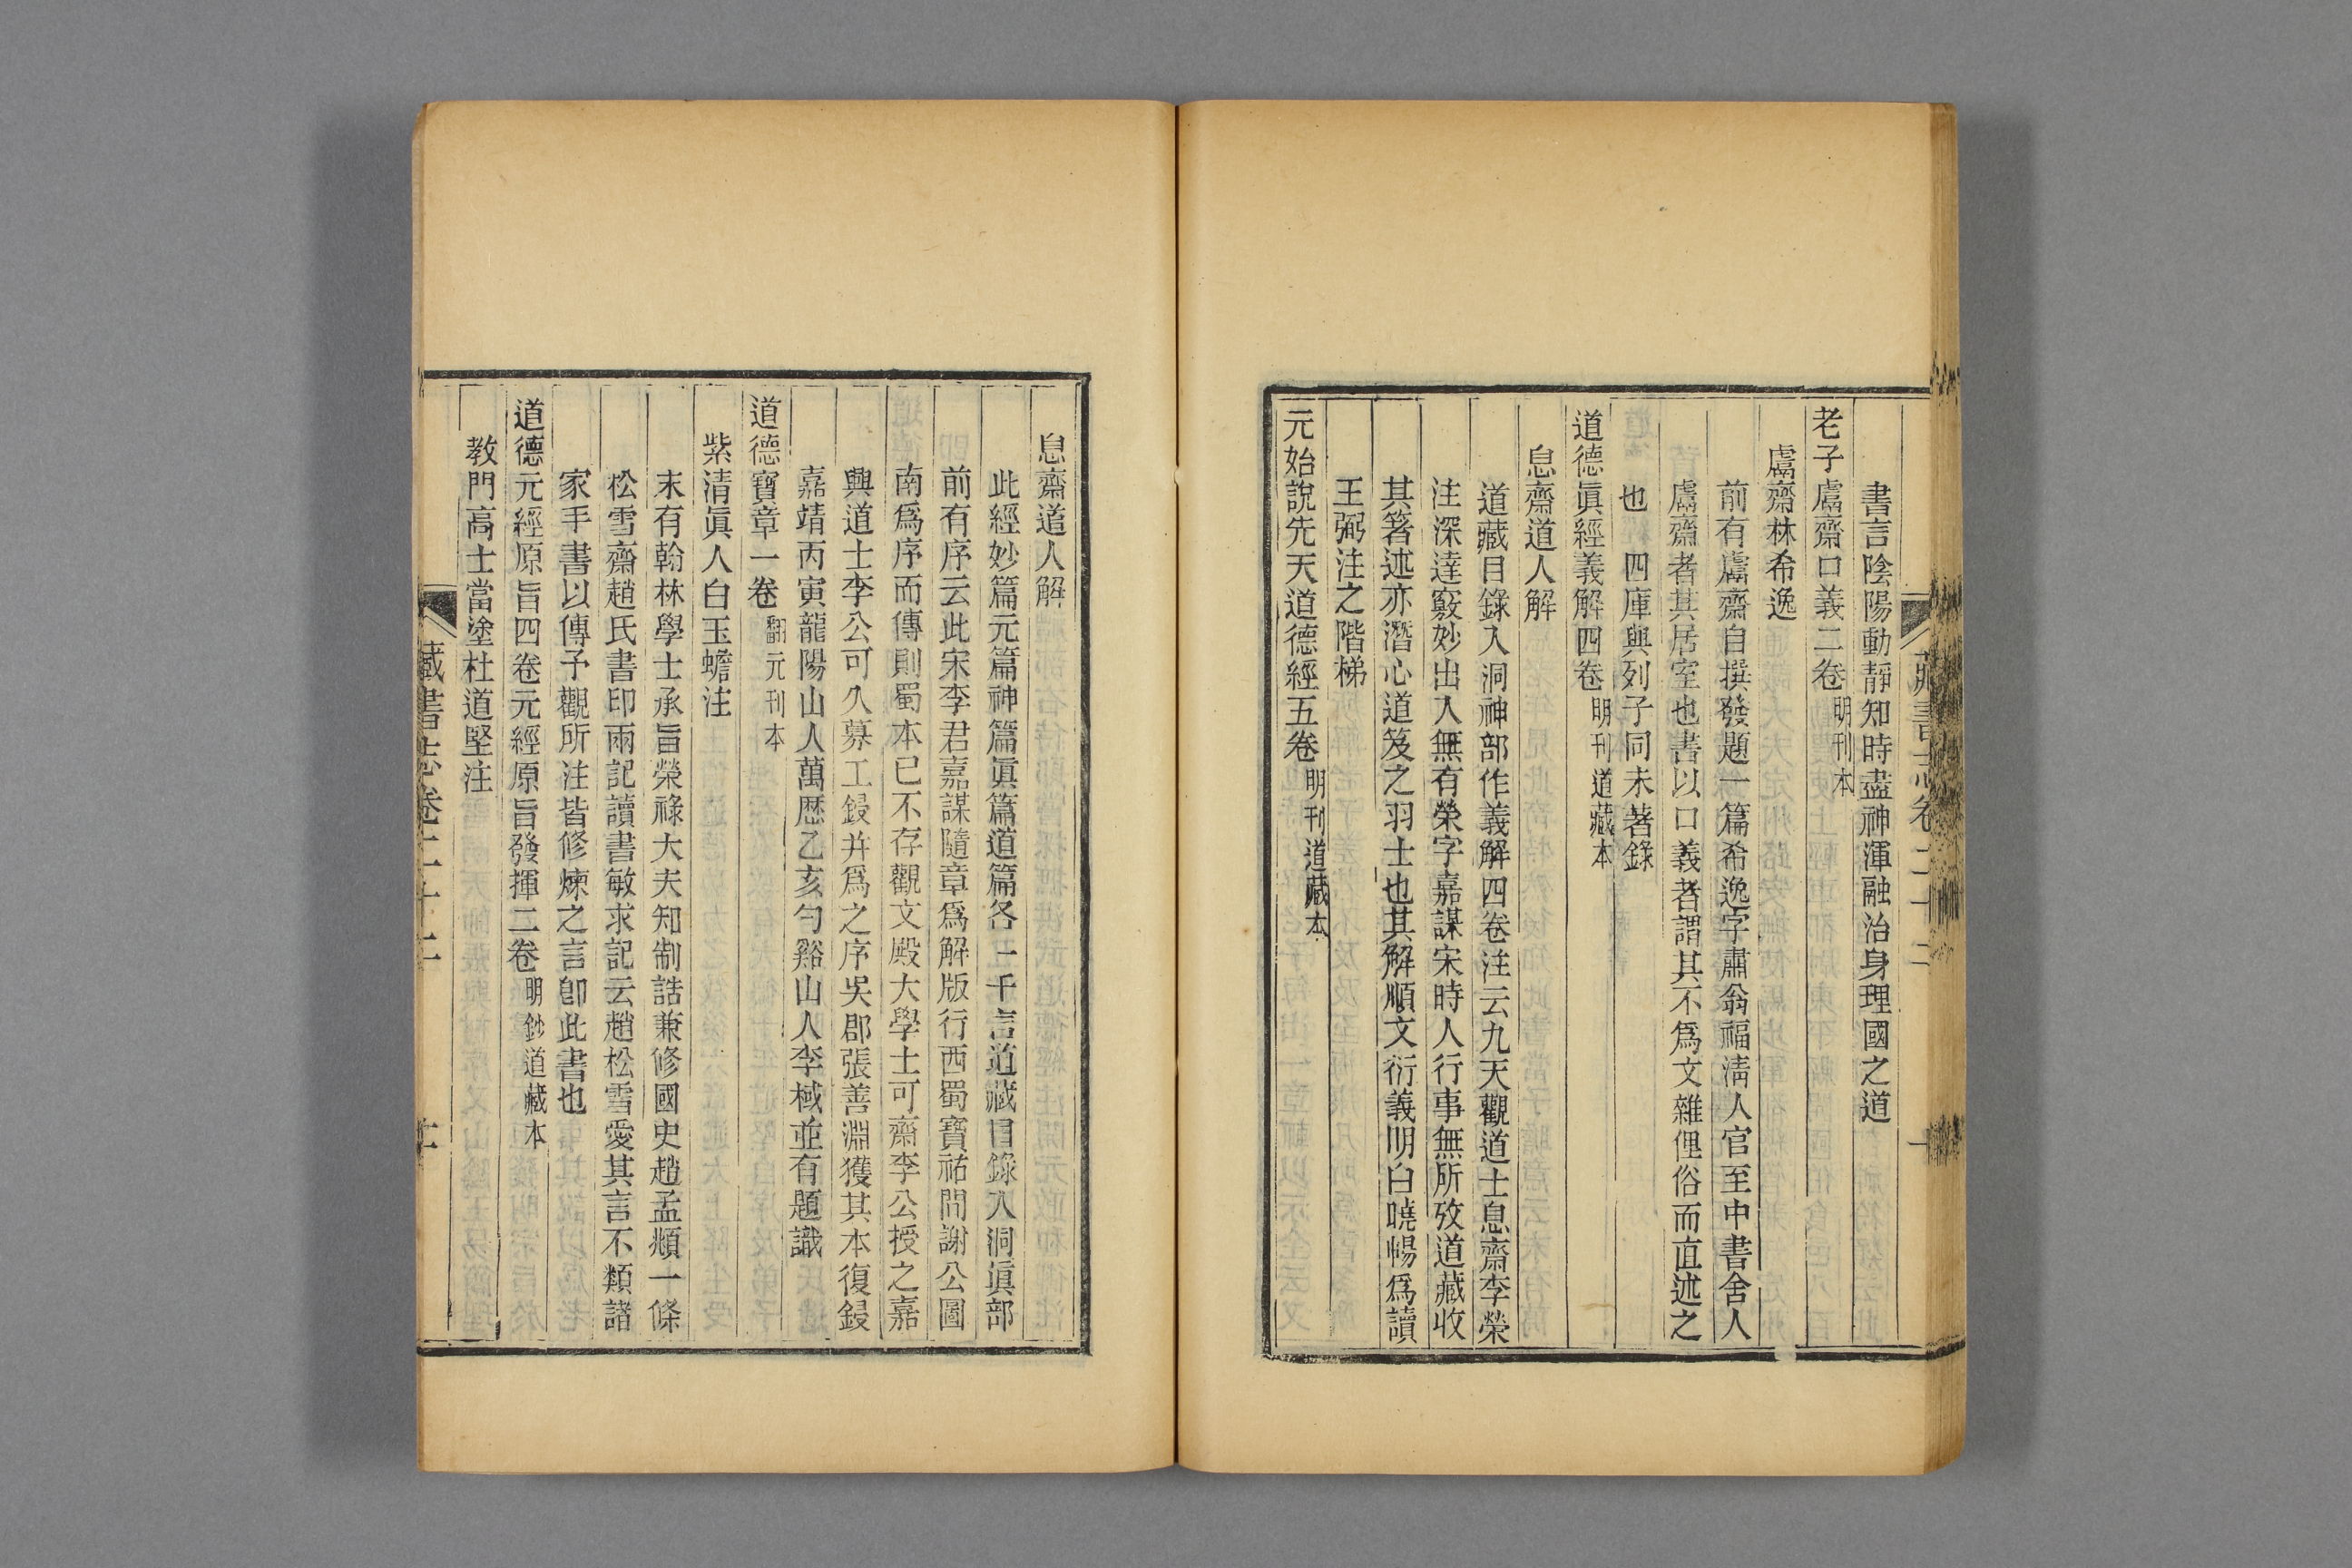 書言陰陽動靜知時盡神渾融治身理國之道
老子鬳齋口義二卷 明刊本
鬳齋林希逸
前有鬳齋自撰發題一篇希逸字肅翁福淸人官至中書舍人
鬳齋者其居室也書以口義者謂其不爲文雜俚俗而直述之
也 四庫與列子同未著錄
道德眞經義解四卷 明刊道藏本
息齋道人解
道藏目錄入洞神部作義解四卷注云九天觀道士息齋李榮
注深達竅妙出入無有榮字嘉謀宋時人行事無所攷道藏收
其箸述亦潛心道笈之羽士也其解順文衍義明白曉暢爲讀
王弼注之階梯
元始說先天道德經五卷 明刊道藏本
藏書志卷二十二
十一
息齋道人解
此經妙篇元篇神篇眞篇道篇各一千言道藏目錄入洞眞部
前有序云此宋李君嘉謀隨章爲解版行西蜀寶祐間謝公圖
南爲序而傳則蜀本已不存觀文殿大學士可齋李公授之嘉
興道士李公可久募工鋟幷爲之序吳郡張善淵獲其本復鋟
嘉靖丙寅龍陽山人萬厯乙亥勻谿山人李棫並有題識
道德寶章一卷 翻元刊本
紫清眞人白玉蟾注
末有翰林學士承旨榮祿大夫知制誥兼修國史趙孟頫一條
松雪齋趙氏書印兩記讀書敏求記云趙松雪愛其言不類諸
家手書以傳予觀所注皆修煉之言卽此書也
道德元經原旨四卷元經原旨發揮二卷 明鈔道藏本
教門高士當塗杜道堅注
藏書志卷二十二